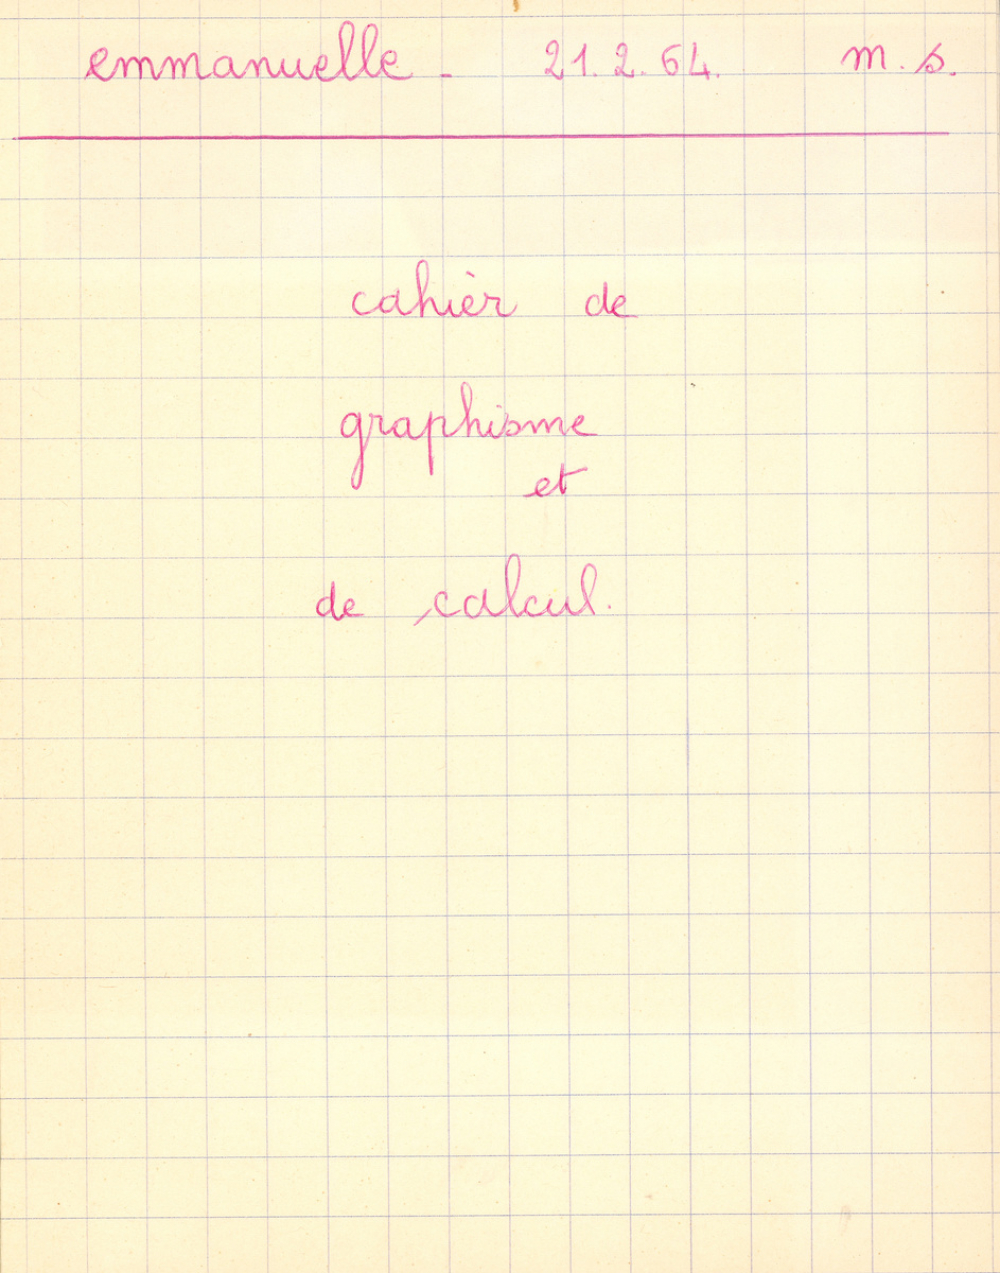 emmanuelle - 21.2.64. m.s.
cahier de
graphisme
et
de calcul.